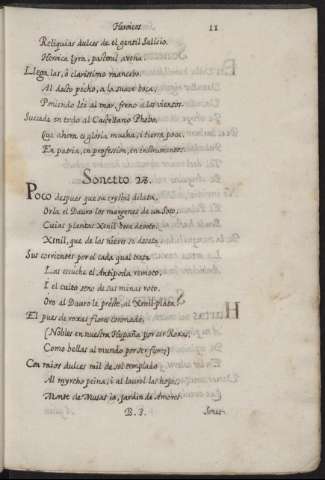 Heroicos 11
Reliquias dulces de el gentil Salicio.
Heroica lyra, pastoral avena.
Llega, las, ô clarissimo mancebo.
Al docto pecho, a la suave boca,
Poniendo lei al mar, freno a los vientos.
Suceda en todo al Castellano Phebo
Que ahora es gloria mucha, i tierra poca,
En patria, en profession, en instrumentos.
Sonetto 23.
Poco despues que su crystal dilata,
Orla el Dauro los margenes de un Soto,
Cuias plantas Xenil besa devoto.
Xenil, que de las nieves se desata.
Sus corrientes por el cada qual trata
Las escuche el Antipoda remoto,
I el culto seno de sus minas roto.
Oro al Dauro le preste, al Xenil plata.
El pues de roxas flores coronado,
(Nobles en nuestra Hespaña por ser Roxas,
Como bellas al mundo por ser flores)
Con raios dulces mil de sol templado
Al myrtho peina, i al laurel las hojas,
Monte de Musas io, Jardin de Amores
B. 3. Sonet-